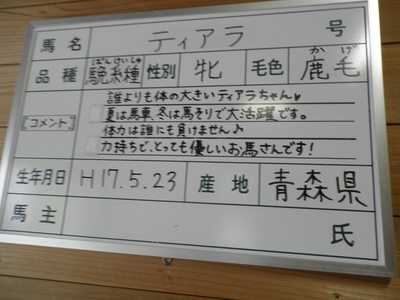 馬名 ティアラ 号
ばんけいしゅ かげ
品種 輓系種 性別 牝 毛色 鹿毛
誰よりも体の大きいティアラちゃん♥
夏は馬車、冬は馬そりで大活躍です。
【コメント】
体力は誰にも負けません♪
力持ちで、とっても優しいお馬さんです!
生年月日 H17.5.23 産地 青森県
馬主 氏